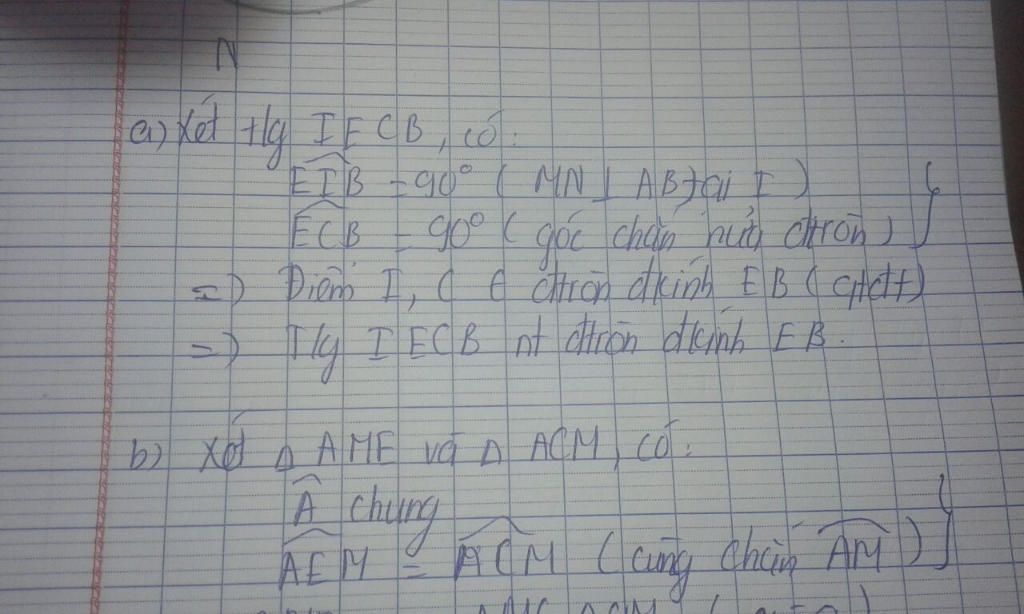 N
a) Xét t/g IECB, có:
EIB = 90° ( MN ⊥ AB tại I )
ECB = 90° ( góc chắn nửa đtròn )
=> Điểm I, C ∈ đtròn đkính EB ( qtđtt )
=> T/g IECB nt đtròn đkính EB.
b) Xét Δ AME và Δ ACM, có:
A chung
AEM = ACM ( cùng chắn AM )